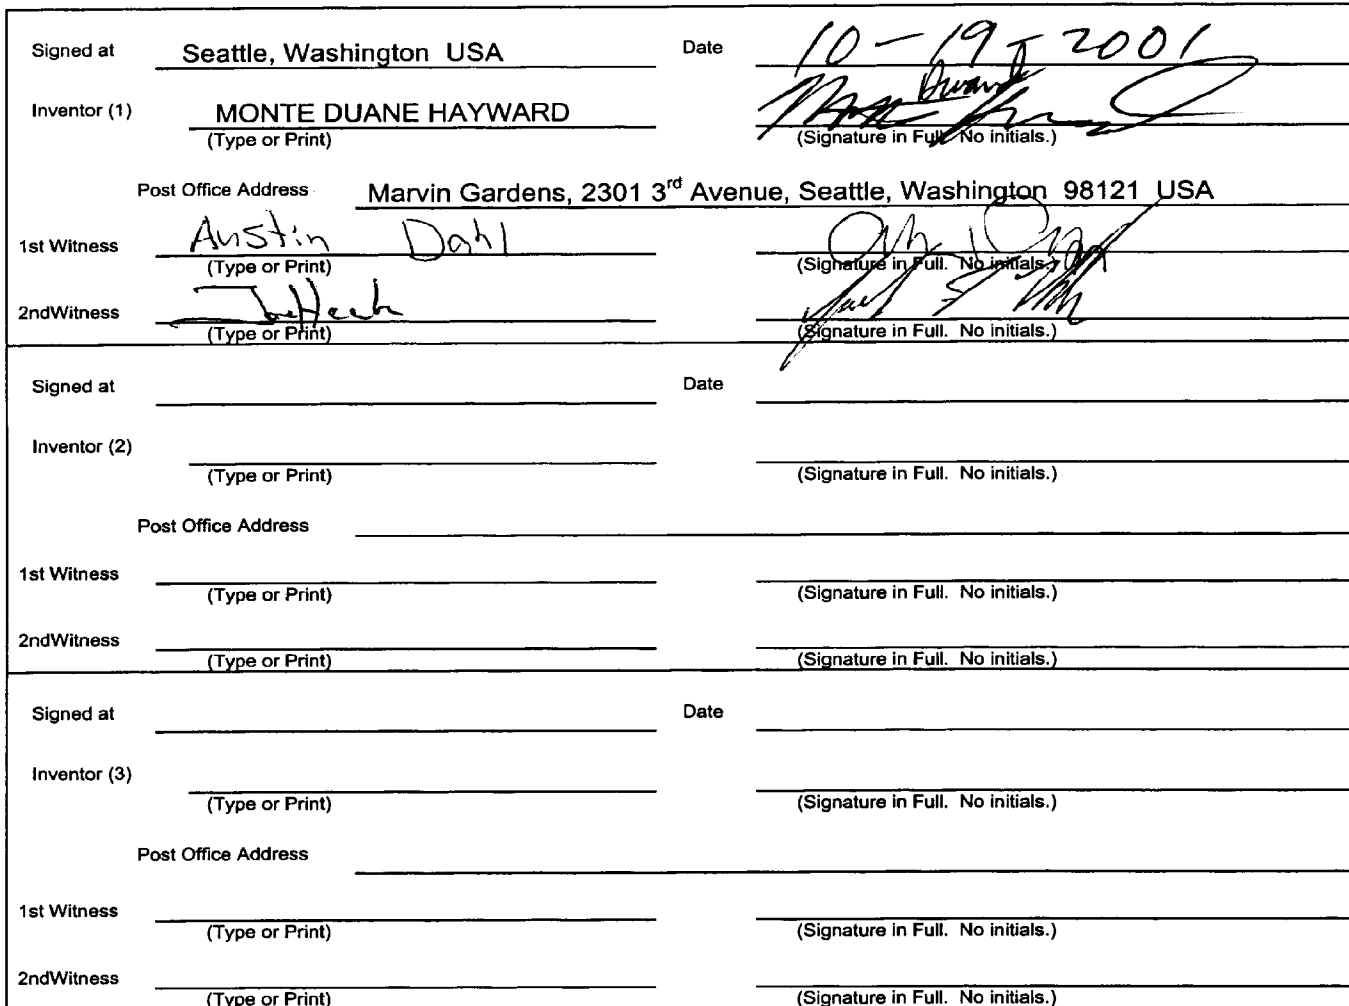 Signed at Seattle, Washington USA Date 10-19-2001
Inventor (1) MONTE DUANE HAYWARD Duane
(Type or Print) (Signature in Full. No initials.)
Post Office Address Marvin Gardens, 2301 3rd Avenue, Seattle, Washington 98121 USA
1st Witness Austin Dahl
(Type or Print) (Signature in Full. No initials.)
2ndWitness
(Type or Print) (Signature in Full. No initials.)
Signed at Date
Inventor (2)
(Type or Print) (Signature in Full. No initials.)
Post Office Address
1st Witness
(Type or Print) (Signature in Full. No initials.)
2ndWitness
(Type or Print) (Signature in Full. No initials.)
Signed at Date
Inventor (3)
(Type or Print) (Signature in Full. No initials.)
Post Office Address
1st Witness
(Type or Print) (Signature in Full. No initials.)
2ndWitness
(Type or Print) (Signature in Full. No initials.)